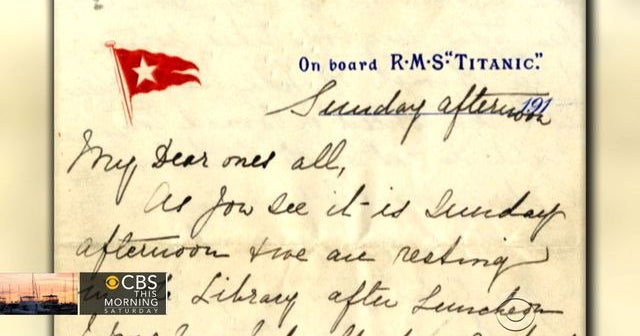 On board R·M·S·"TITANIC."
191
Sunday afternoon
My Dear ones all,
As you see it is Sunday
afternoon & we are resting
Library after Luncheon
CBS
THIS
MORNING
SATURDAY